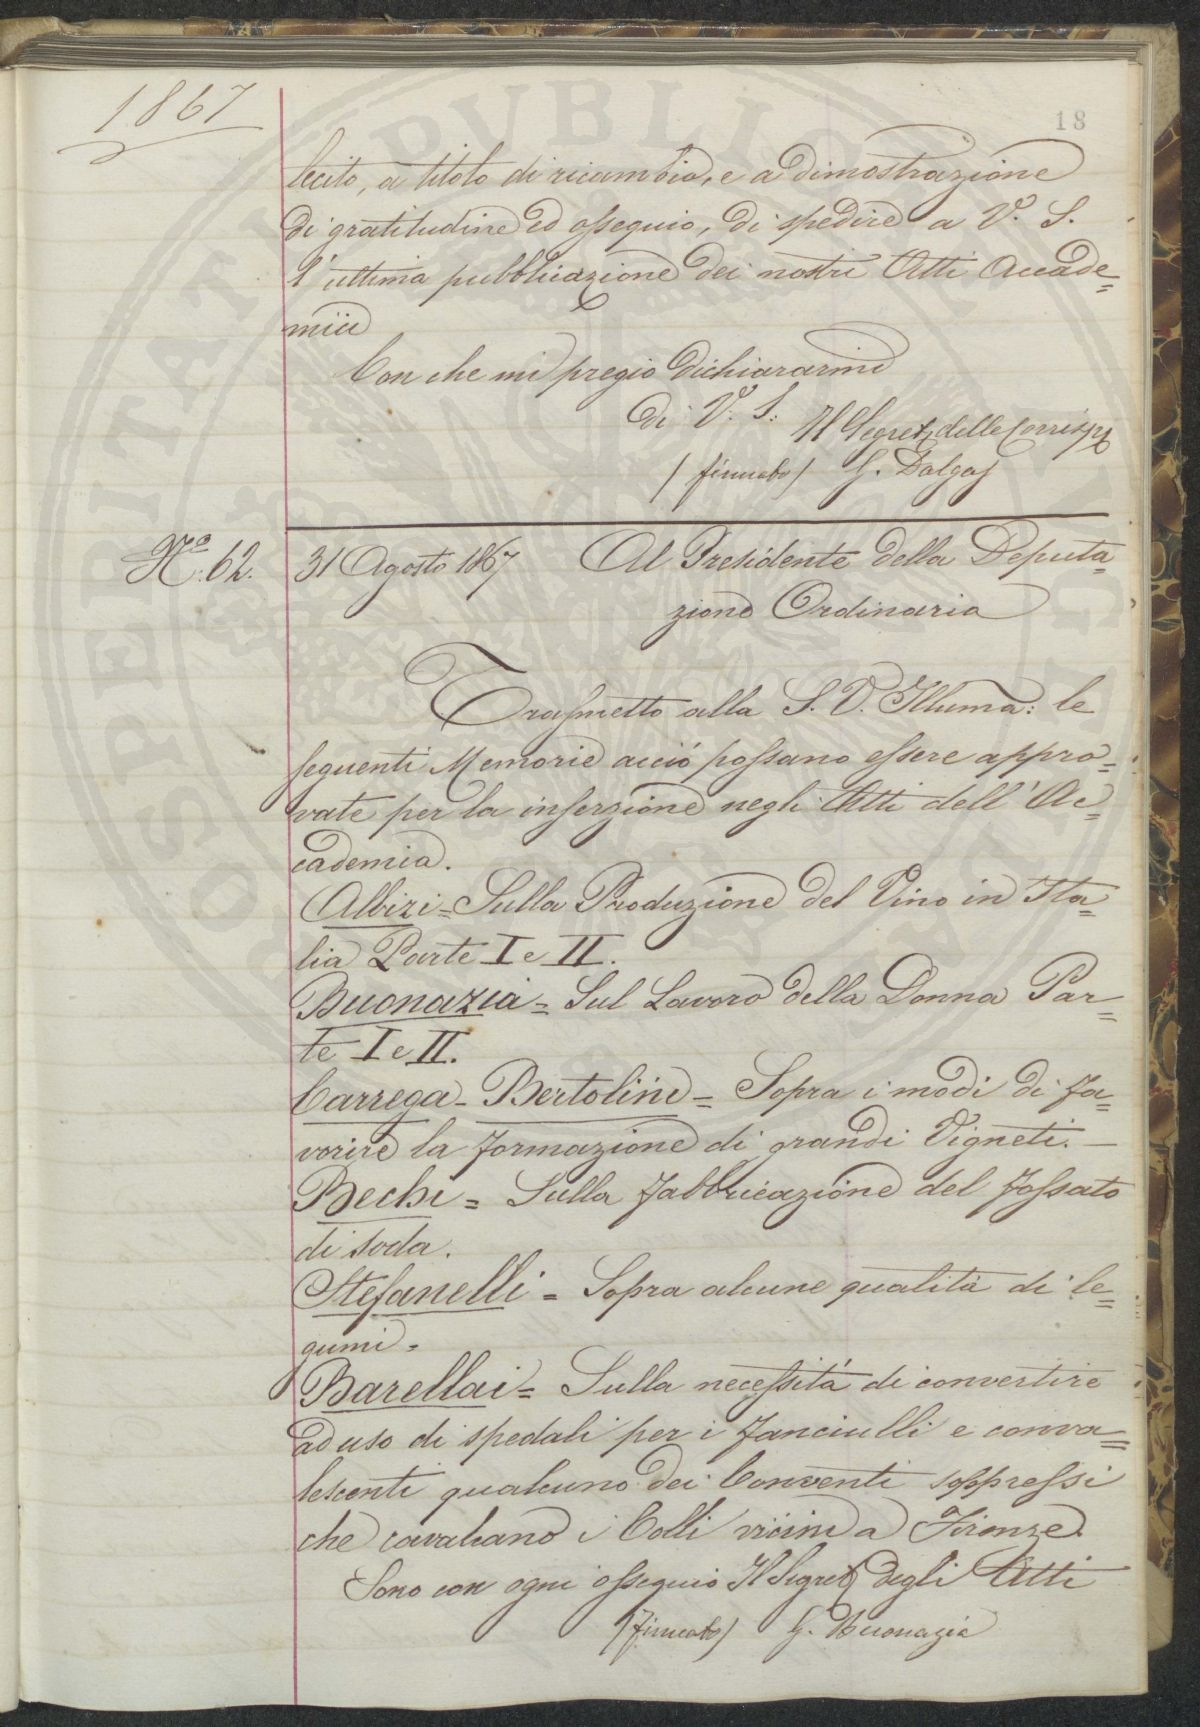 1867
18
lecito, a titolo di ricambio, e a dimostrazione
di gratitudine ed ossequio, di spedire a V. S.
l'ultima pubblicazione dei nostri Atti Accade=
mici
Con che mi pregio dichiararmi
di V. S.
Il Segret. delle Corrisp.
(firmato) G. Dalgas
No. 62.
31 Agosto 1867 Al Presidente della Deputa=
zione Ordinaria
Trasmetto alla S. V. Illuma: le
seguenti Memorie acciò possano essere appro=
vate per la inserzione negli Atti dell'Ac=
cademia.
Albizi = Sulla Produzione del Vino in Ita=
lia Parte I e II.
Buonazia = Sul Lavoro della Donna Par=
te I e II.
Carrega - Bertolini = Sopra i modi di fa=
vorire la formazione di grandi Vigneti. —
Bechi = Sulla fabbricazione del fossato
di soda.
Stefanelli = Sopra alcune qualità di le=
gumi =
Barellai = Sulla necessità di convertire
ad uso di spedali per i fanciulli e conva=
lescenti qualcuno dei Conventi soppressi
che cavalcano i Colli vicini a Firenze.
Sono con ogni ossequio Il Segret. degli Atti
(firmato) G. Buonazia
PROSPERITATI PUBLICAE AUGENDAE